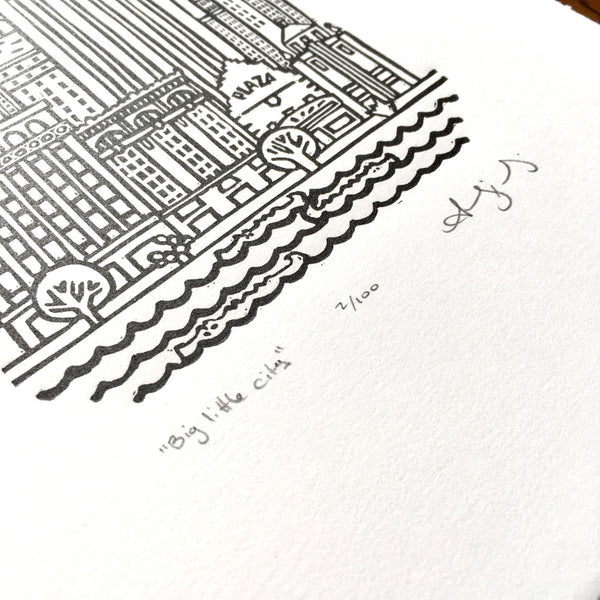 PLAZA
"Big little city"
2/100